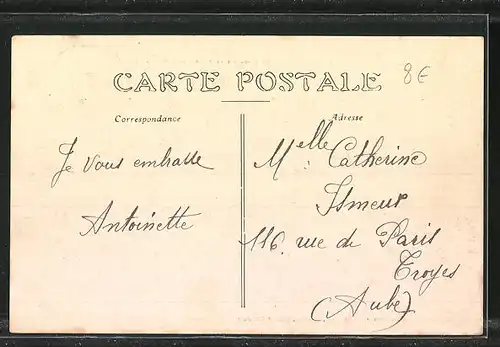 CARTE POSTALE
8€
Correspondance
Adresse
Je vous embrasse
Antoinette
Melle Catherine
Ismeur
116. rue de Paris
Troyes
(Aube)